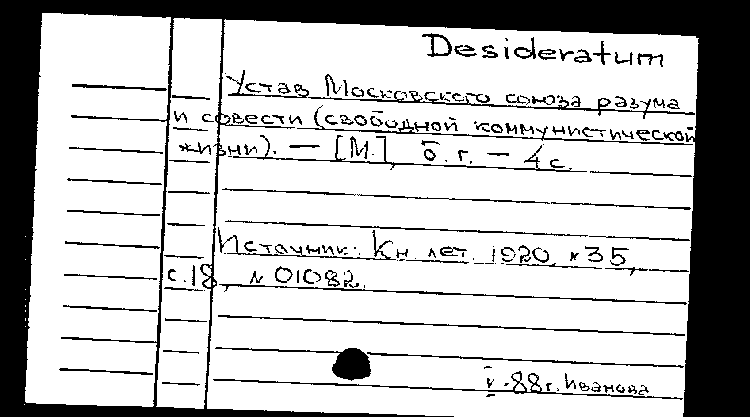 Desideratum
Устав Московского союза разума
и совести (свободной коммунистической
жизни). — [М.], б. г. — 4 с.
Источник: Кн. лет. 1920, № 35,
с. 18, № 01082.
V-88 г. Иванова